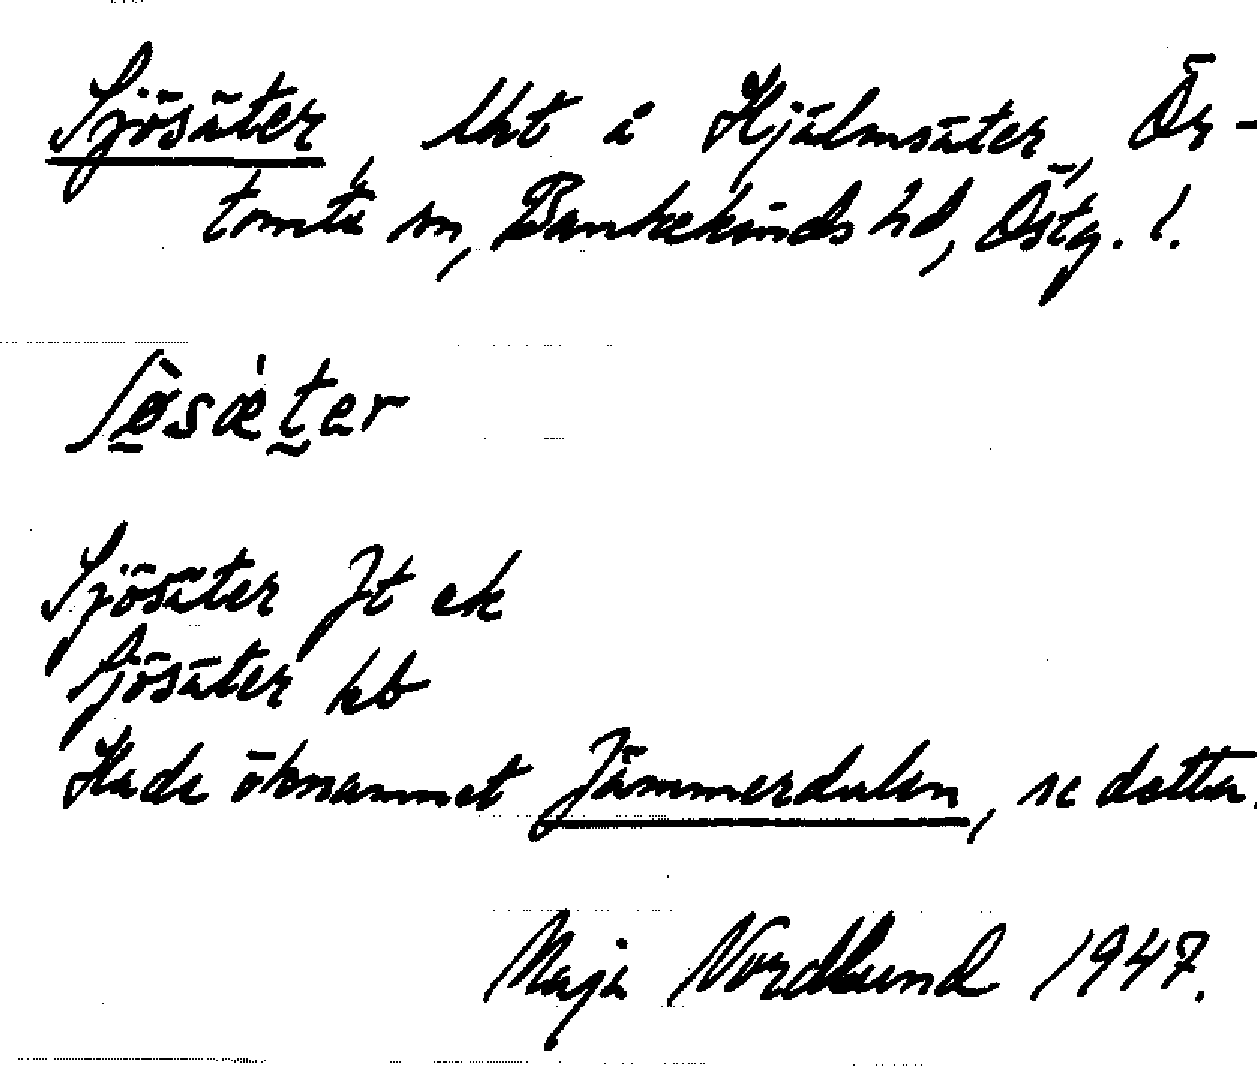 Sjösäter, lht i Hjälmsäter, Ör-
tomta sn, Bankekinds hd, Östg. l.
ʃø̠̀sǽt̰er
Sjösäter Jt ek
Sjösäter kb
Hade öknamnet Jämmerdalen, se detta.
Maja Nordlund 1947.